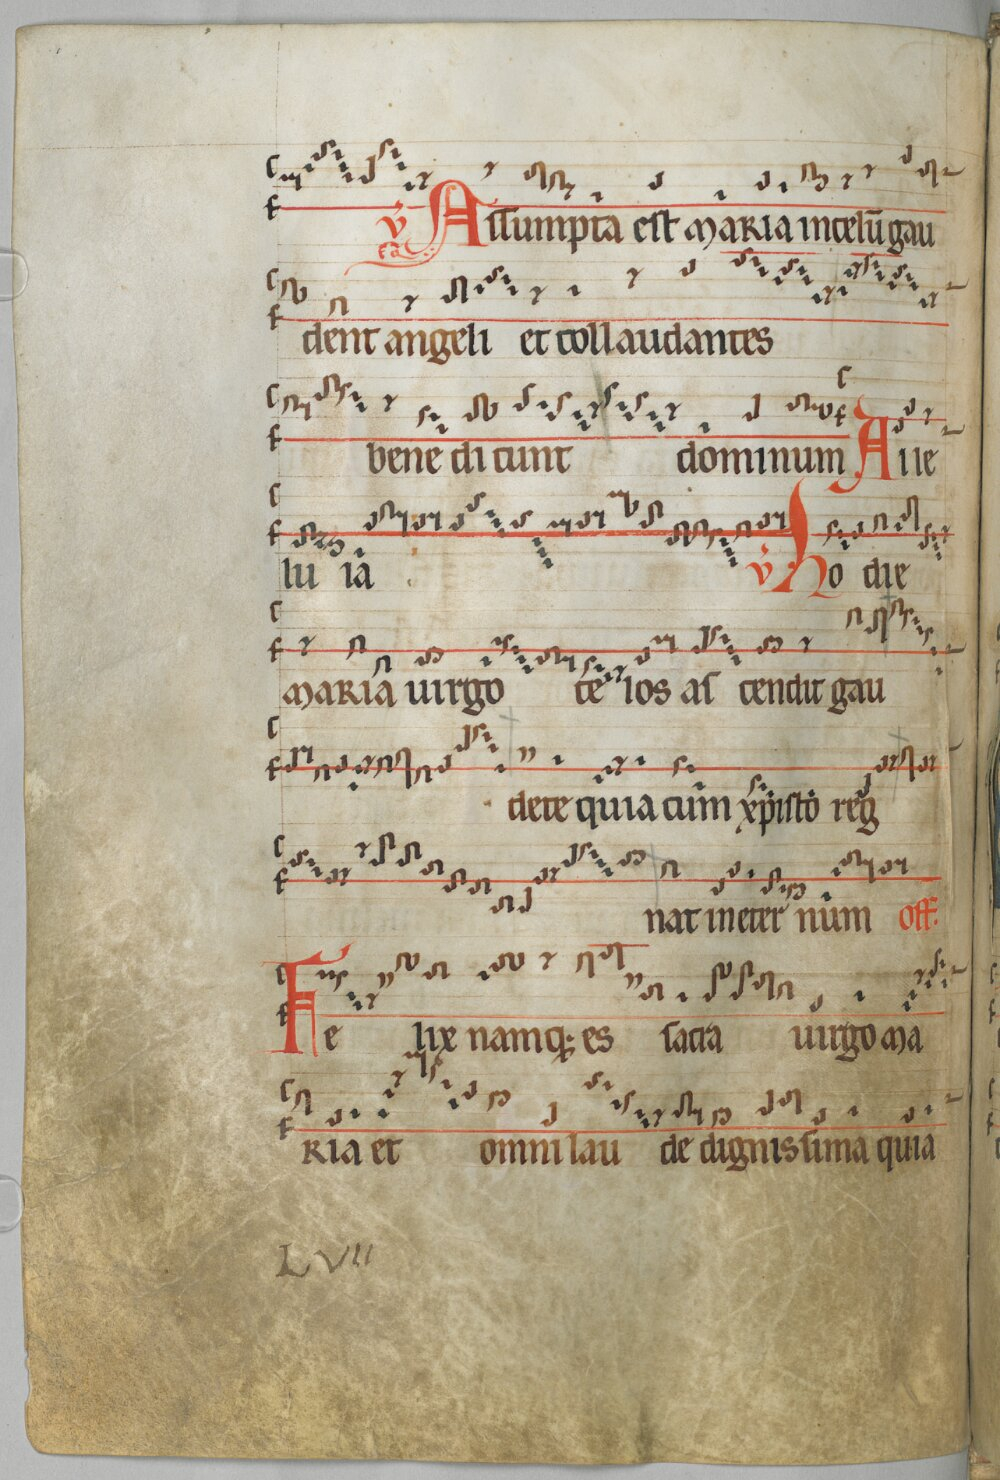 v̄ Assumpta est maria in celū gau
dent angeli et collaudantes
bene dicunt dominum Alle
lu ia v̄ Ho die
maria uirgo ce los as cendit gau
dete quia cum xp̄isto reg
nat in eter num off.
Fe lix namq; es sacra uirgo ma
ria et omni lau de dignissima quia
LVII